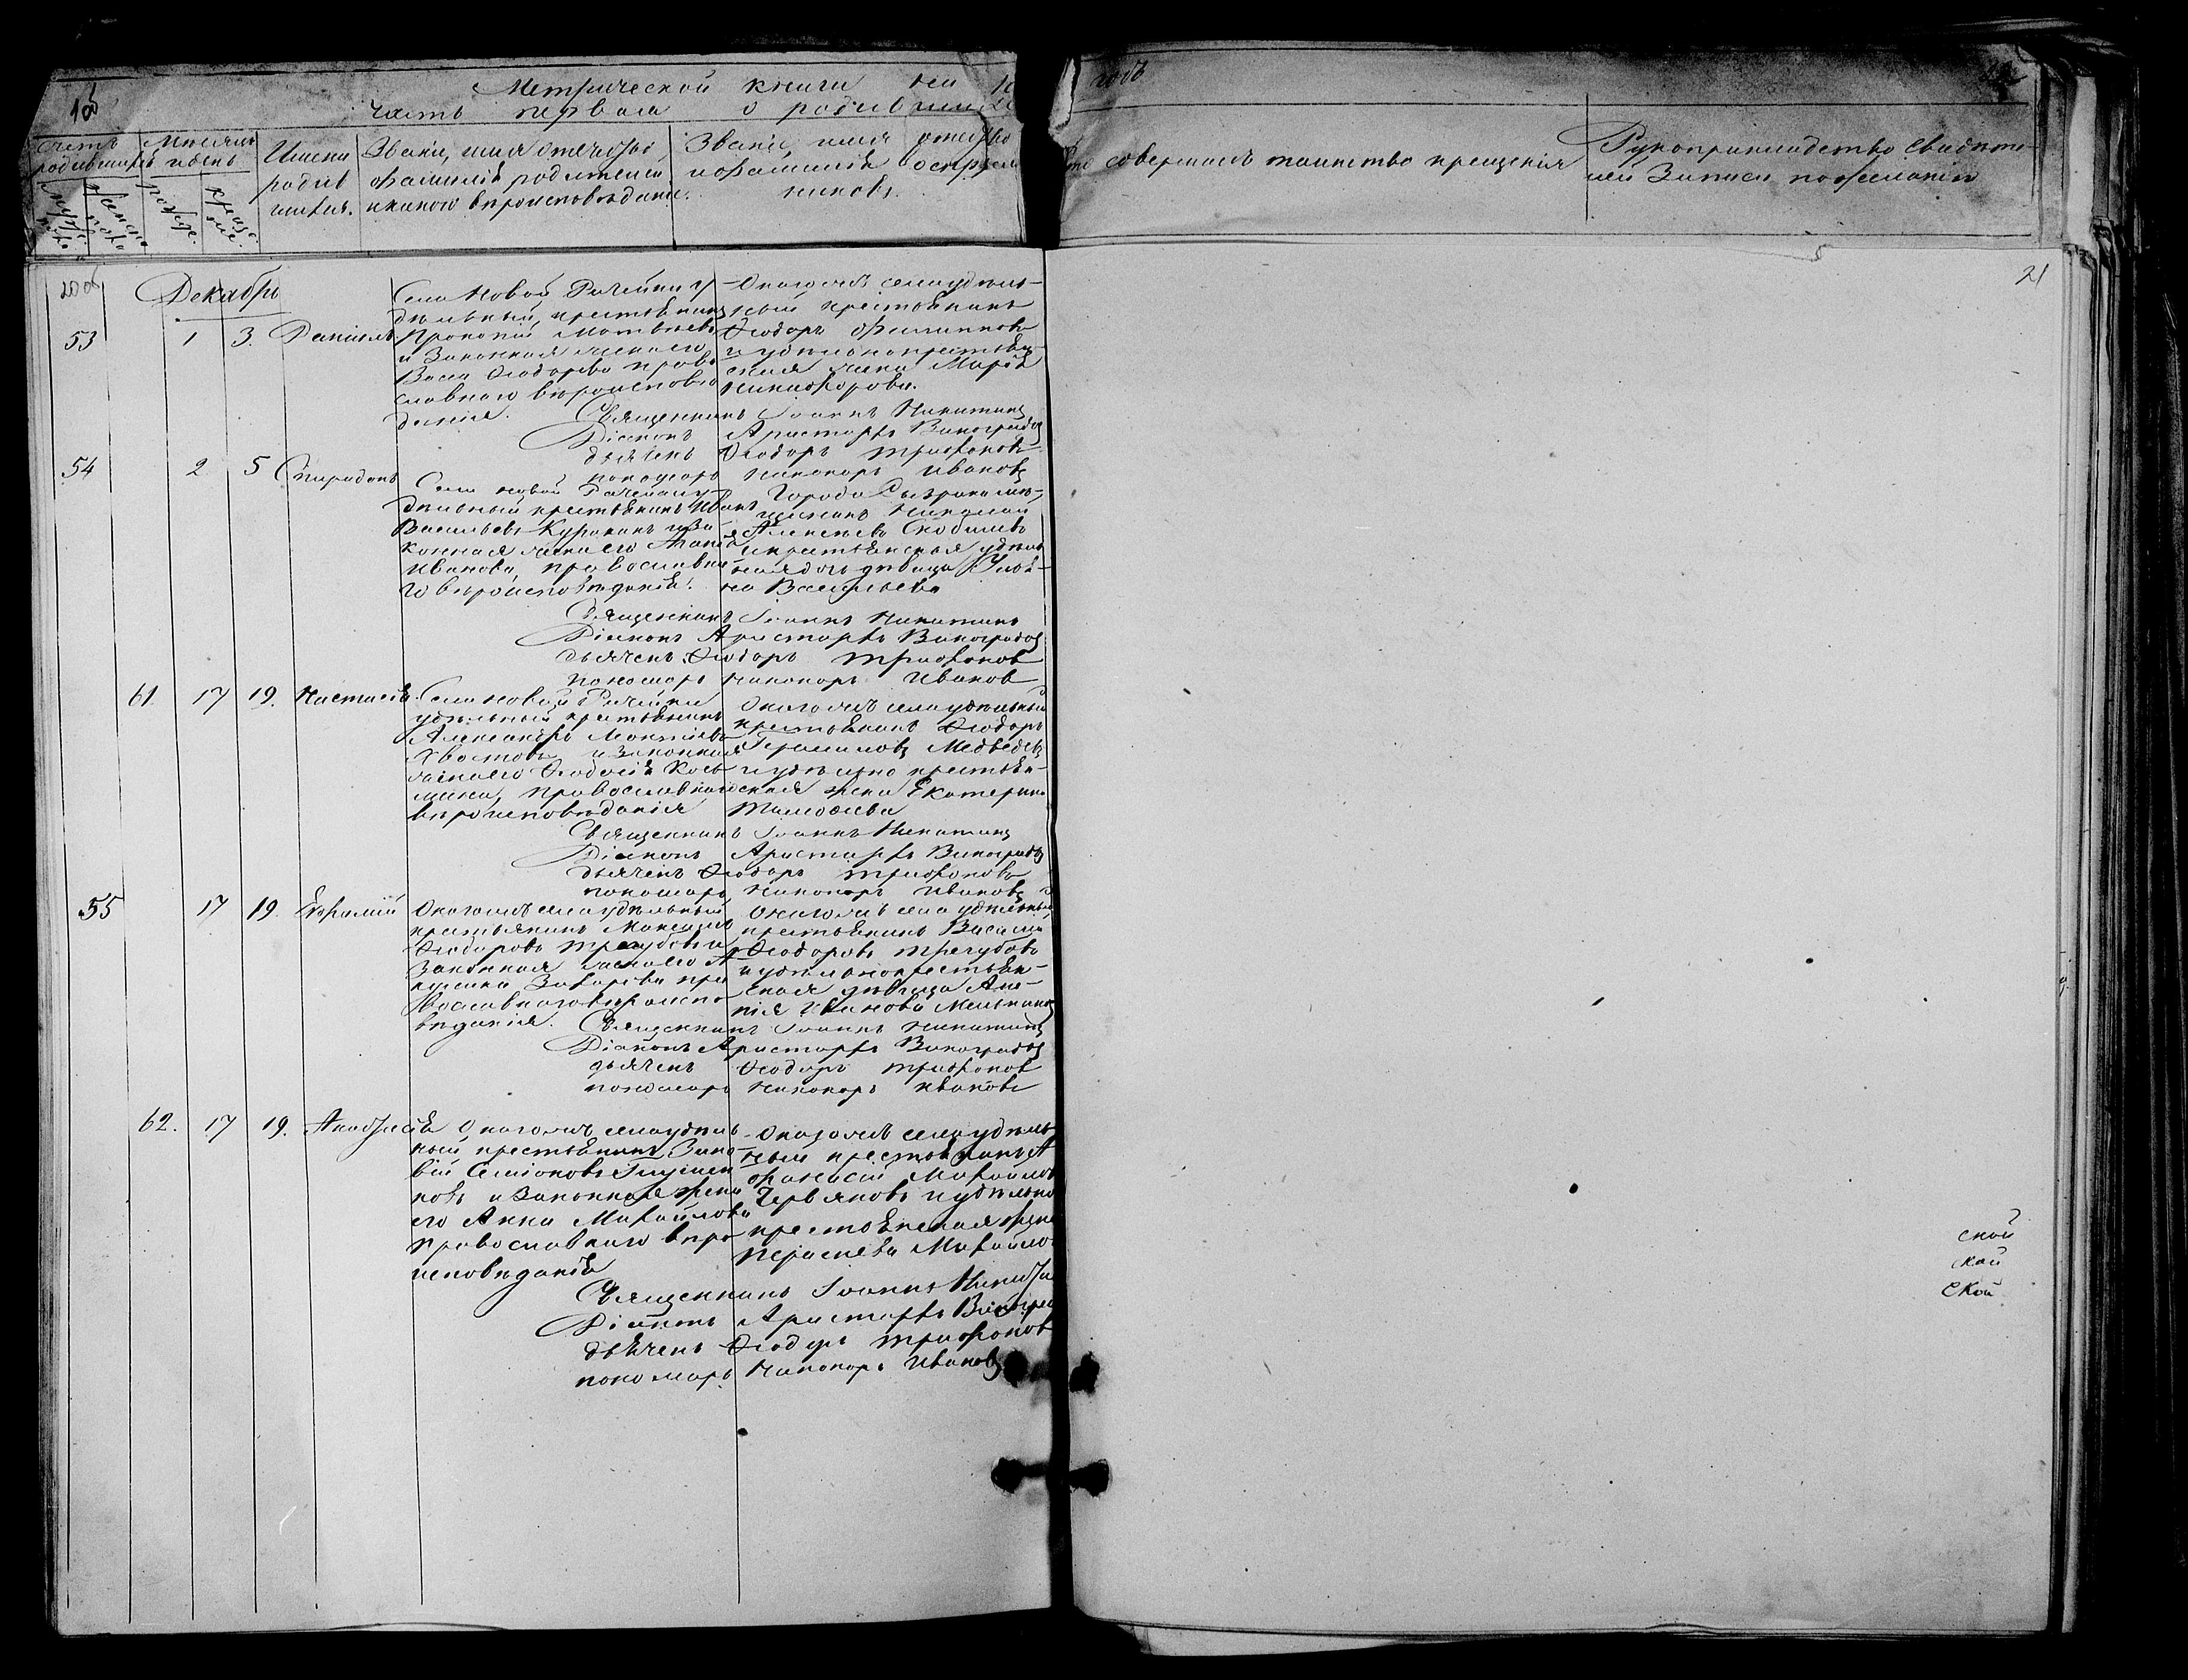 Метрической книги на
часть первая о родив
годъ
Счетъ родившихся
Мѣсяцъ и день
Имена родив шихся.
Званіе, имя отечество, фамилія родителей и какого вѣроисповѣданія.
Званіе, имя отчество и фамилія воспріем никовъ.
совершалъ таинство крещенія
Рукоприкладство свидѣте лей записи по желанію
21
Декабрь
53 1 3. Даніилъ
Села Новой Рачейки у
дѣльный крестьянинъ
Прокопій Матвѣевъ
и законная жена его
Васса Ѳеодорова право
славнаго вѣроисповѣ
данія.
Онаго жъ села удѣль-
ный крестьянинъ
Ѳеодоръ Филипповъ
и удѣльно крестьян-
ская жена Марія
Никифорова.
Священникъ Іоаннъ Никитинъ
Діаконъ Аристархъ Виноградов
дьячекъ Ѳеодоръ Трифоновъ
пономарь Никаноръ Ивановъ
54 2 5 Спиридонъ
Села Новой Рачейки у-
дѣльный крестьянинъ Иванъ
Васильевъ Куракинъ и за
конная жена его
Иванова, православна
го вѣроисповѣданія.
Города Сызрана мѣ-
щанинъ Николай
Алексѣевъ
и крестьянская удѣль
ная дочь дѣвица Улья-
на Васильева
Священникъ Іоаннъ Никитинъ
Діаконъ Аристархъ Виноградов
дьячекъ Ѳеодоръ Трифонов
пономарь Никаноръ Иванов
61. 17 19. Настасія
Села Новой Рачейки
удѣльный крестьянинъ
Александръ Моисѣевъ
Хвостовъ и законная
жена его Ѳеодосія Козь
мина, православнаго
вѣроисповѣданія
Онаго жъ села удѣльный
крестьянинъ Ѳеодоръ
Герасимовъ Медведев
и удѣльно крестьян-
ская жена Екатерина
Тимоѳеева
Священникъ Іоаннъ Никитинъ
Діаконъ Аристархъ Виноградов
дьячекъ Ѳеодоръ Трифоновъ
пономарь Никаноръ Ивановъ
55 17 19. Евфимій
Онаго жъ села удѣльный
крестьянинъ Максимъ
Ѳеодоровъ Трегубовъ и
законная жена его А
кулина Захарова пра
вославнаго вѣроиспо
вѣданія.
Онаго жъ села удѣльный
крестьянинъ Василій
Ѳеодоровъ Трегубовъ
и удѣльно крестьян-
ская дѣвица
Иванова
Священникъ Іоаннъ Никитинъ
Діаконъ Аристархъ Виноградов
дьячекъ Ѳеодоръ Трифонов
пономарь Никаноръ Ивановъ
62. 17 19. Анастасія
Онаго жъ села удѣль
ный крестьянинъ Зино
вій Семіоновъ Глушен
ковъ и законная жена
его Анна Михайлова
православнаго вѣро
исповѣданія
Онаго жъ села удѣль
ный крестьянинъ А
фанасій Михайловъ
Червяковъ и удѣльно
крестьянская жена
Михайло
Священникъ Іоаннъ Никити
Діаконъ Аристархъ Виногра
дьячекъ Ѳеодоръ Трифонов
пономарь Никаноръ Ивановъ
ской
ской
ской